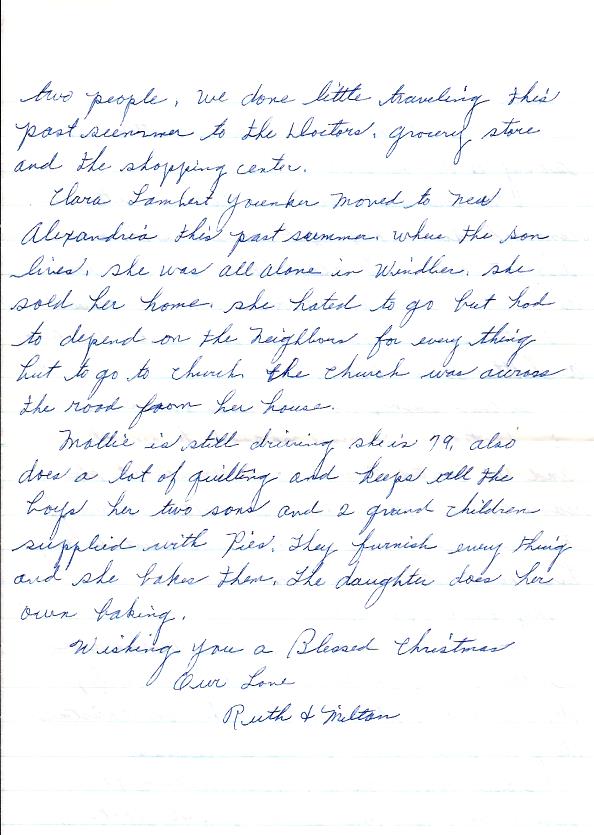 two people. We done little traveling this
past summer to the Doctors, grocery store
and the shopping center.
Clara Lambert Younker moved to New
Alexandria this past summer. where the son
lives. she was all alone in Windber. she
sold her home. she hated to go but had
to depend on the neighbors for every thing
but to go to church. the church was across
the road from her house.
Mollie is still driving she is 79, also
does a lot of quilting and keeps all the
boys her two sons and 2 grand children
supplied with Pies. They furnish every thing
and she bakes them. The daughter does her
own baking.
Wishing you a Blessed Christmas
Our Love
Ruth & Milton